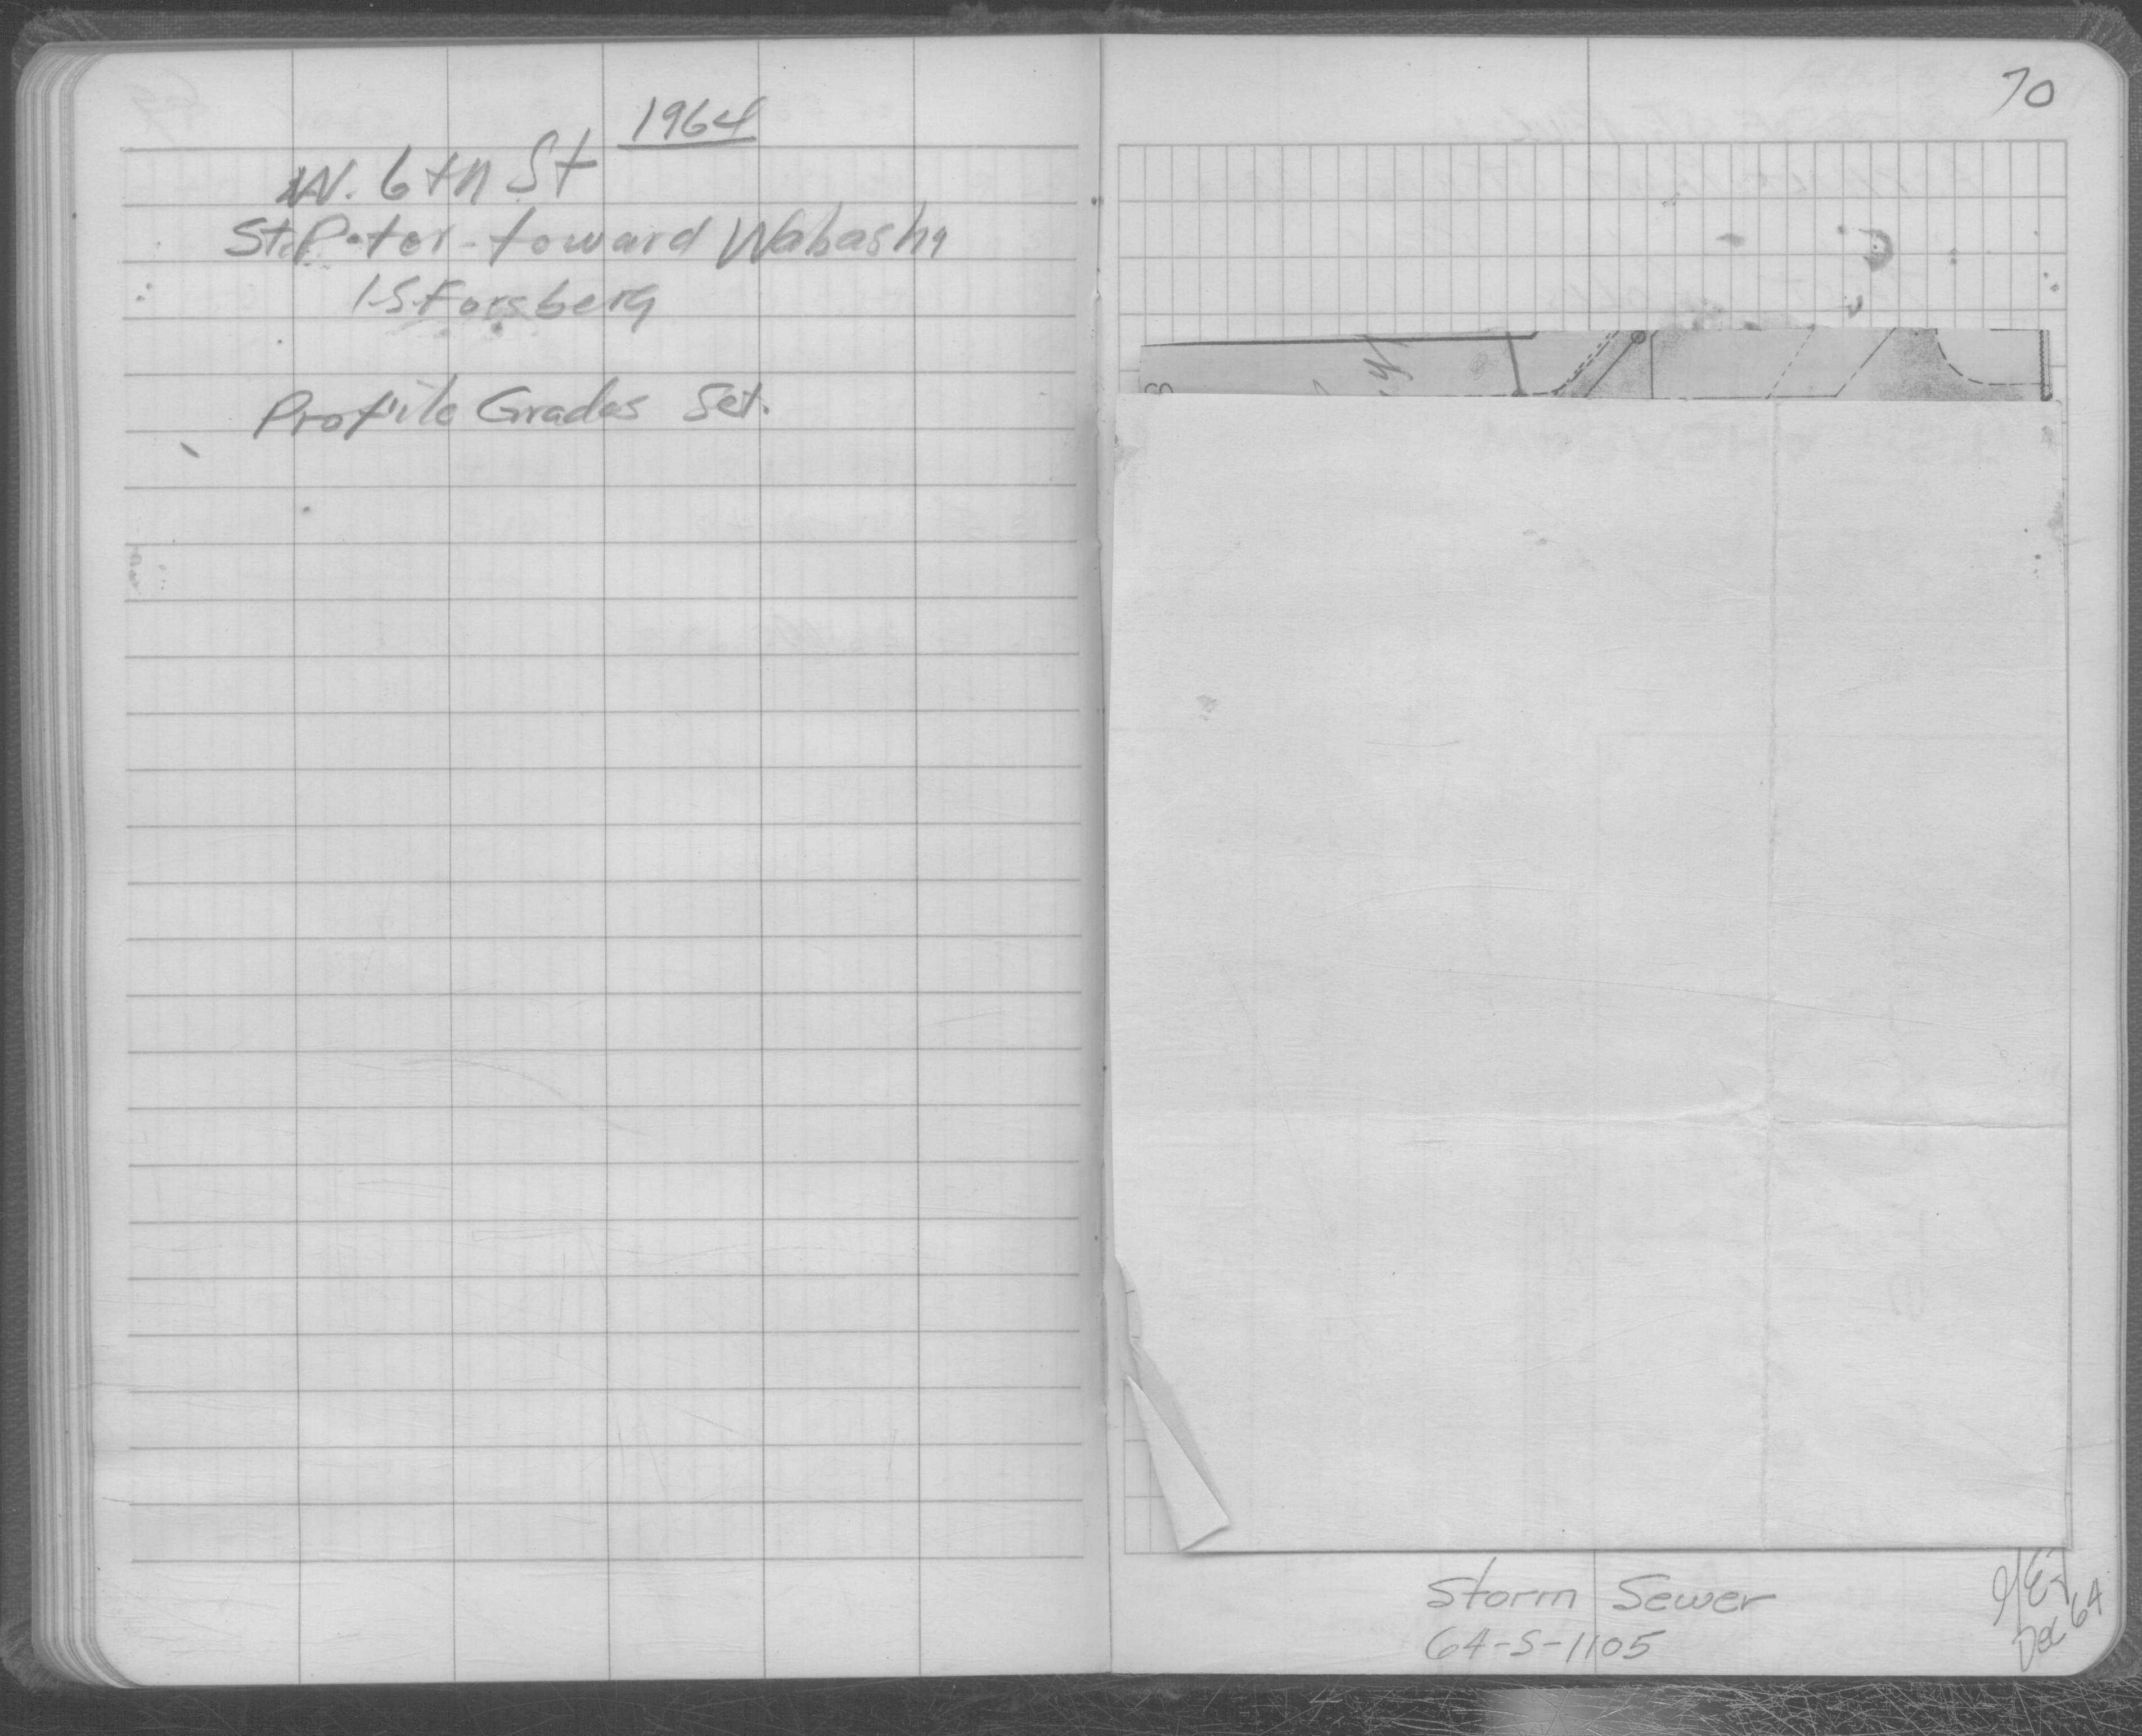 1964
W. 6th St
St. Peter - toward Wabasha
I.S. Forsberg
Profile Grades Set.
70
Storm Sewer
64-S-1105
Dec 64